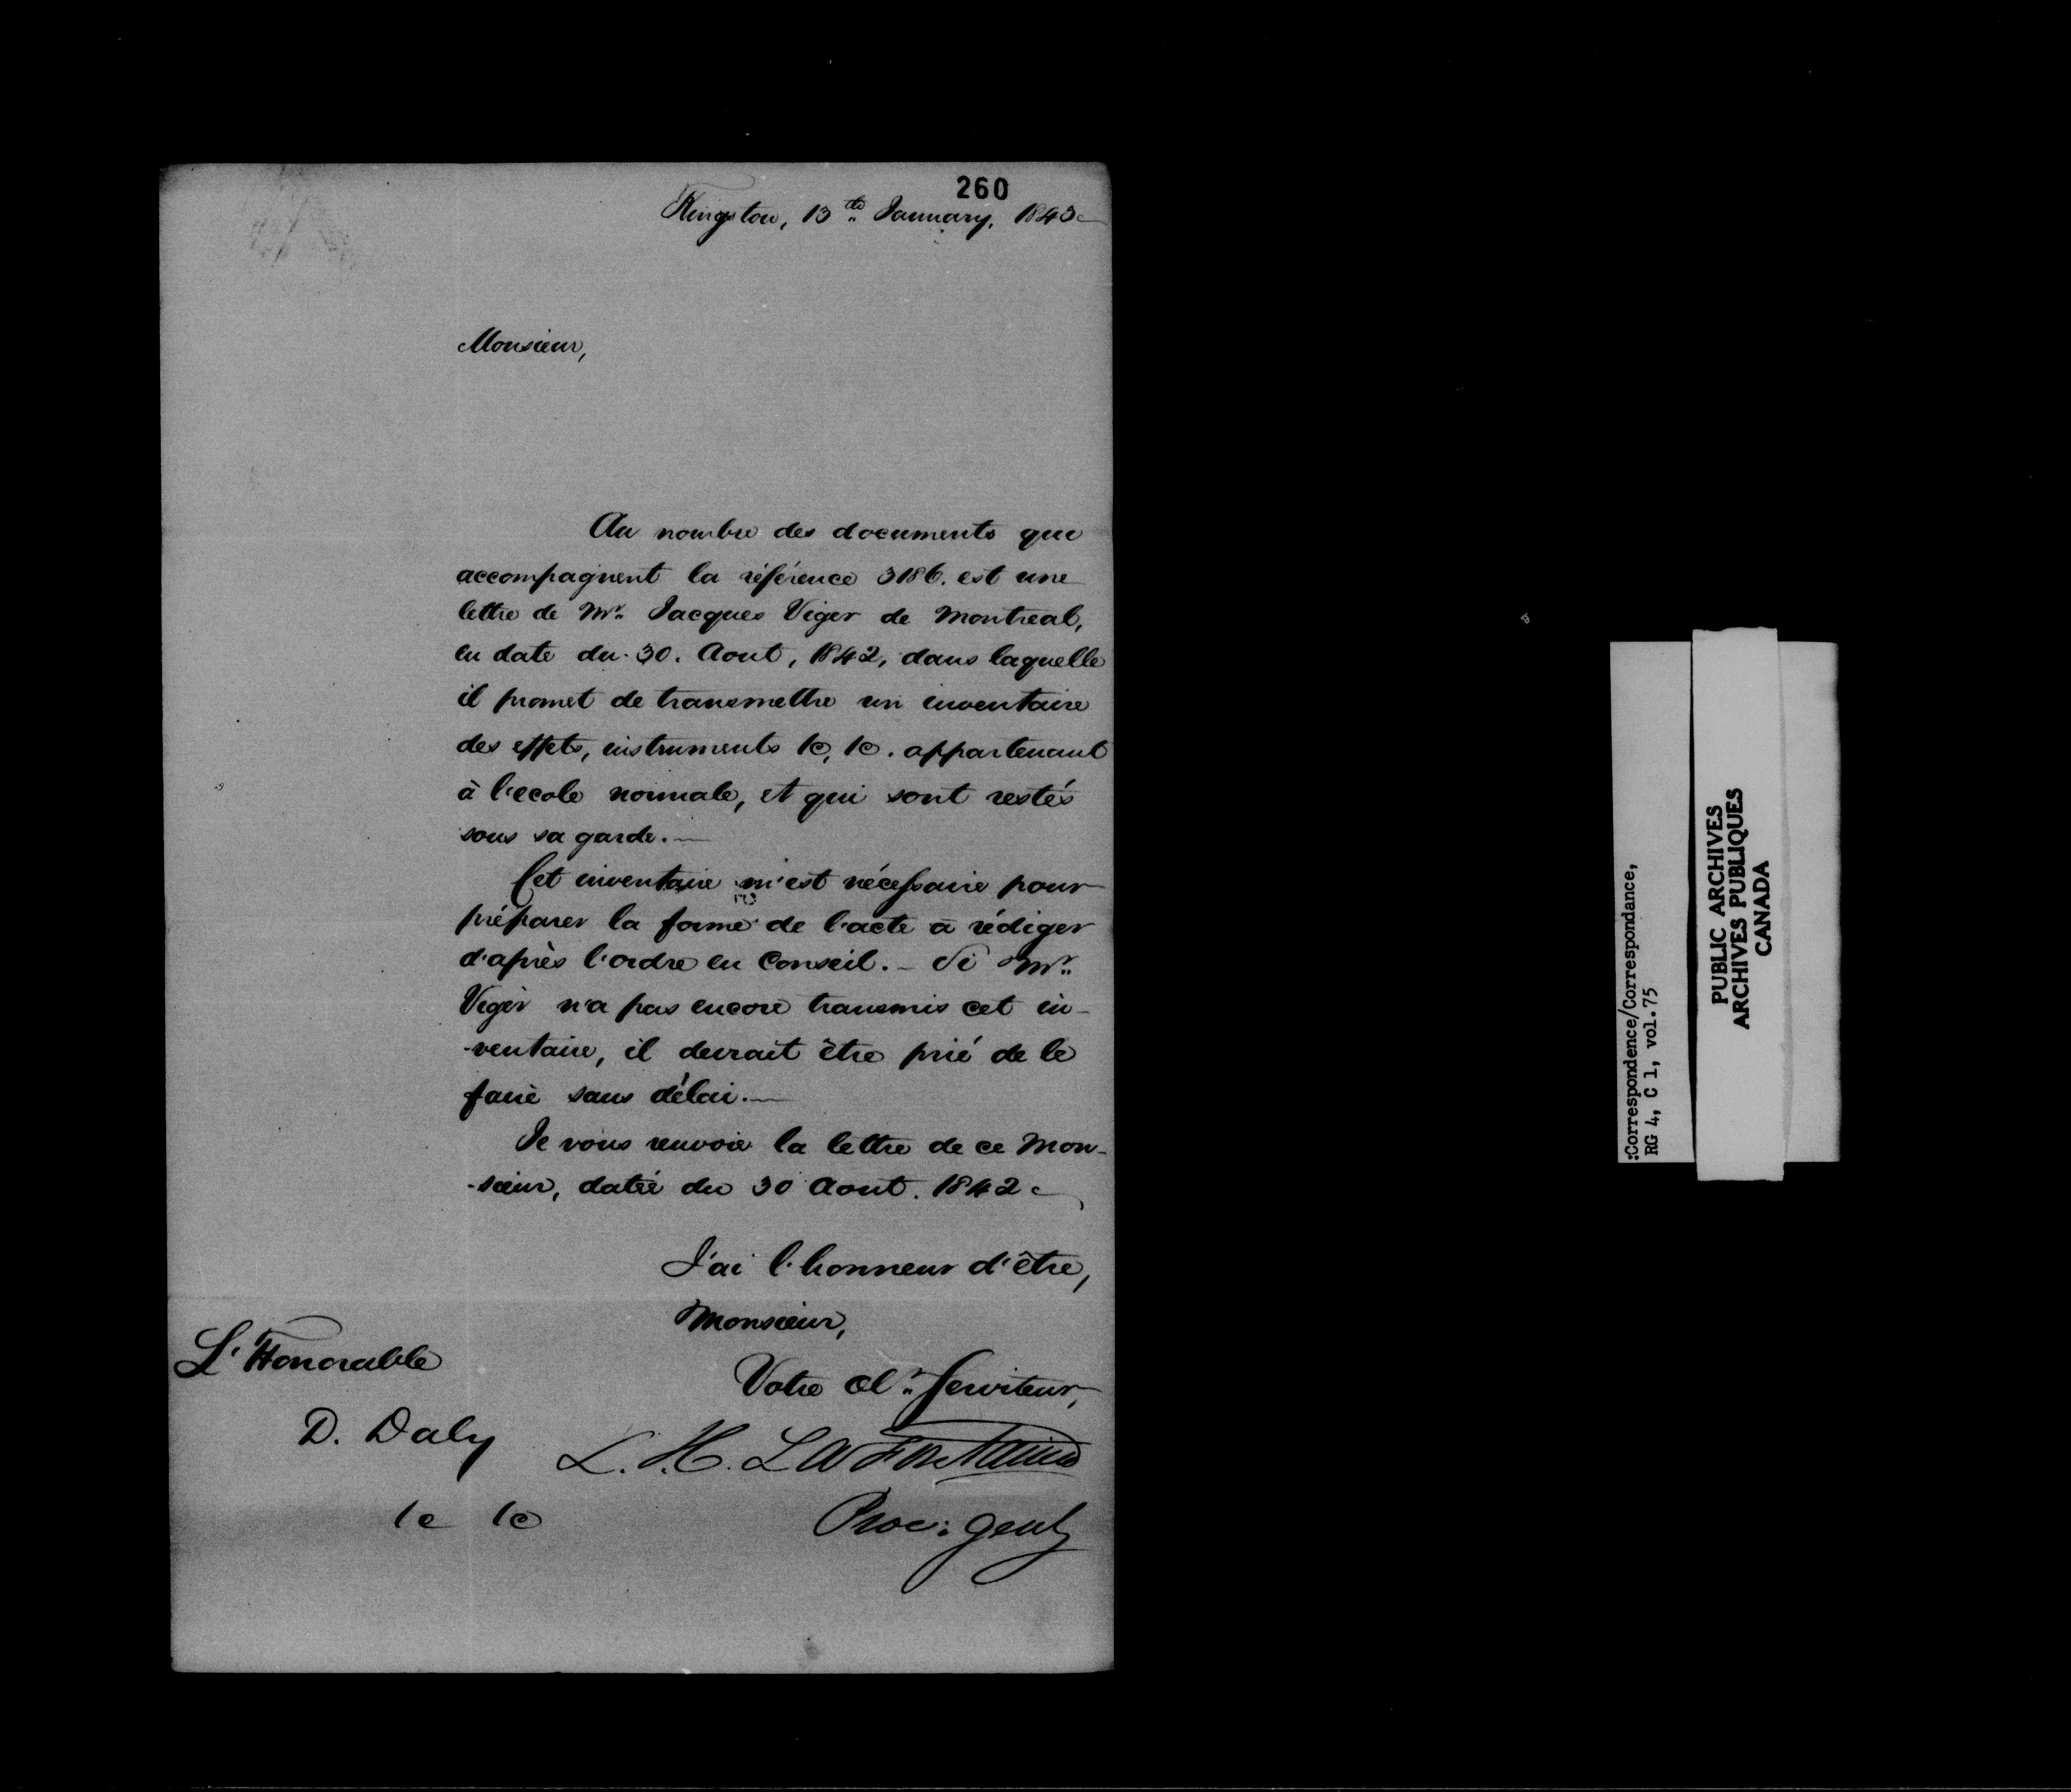 260
Kingston, 13th January, 1843
Monsieur,
Au nombre des documents qui
accompagnent la référence 3186. est une
lettre de Mr. Jacques Viger de Montreal,
en date du 30. Aout, 1842, dans laquelle
il promet de transmettre un inventaire
des effets, instruments &c, &c. appartenant
à l'ecole normale, et qui sont restés
sous sa garde.—
Cet inventaire m'est nécessaire pour
préparer la forme de l'acte à rédiger
d'après l'ordre en Conseil.— Si Mr.
Viger n'a pas encore transmis cet in-
-ventaire, il devrait être prié de le
faire sans délai.—
Je vous renvoie la lettre de ce Mon-
-sieur, datée du 30 Aout. 1842
J'ai l'honneur d'être,
Monsieur,
Votre Ob. Serviteur,
L. H. LaFontaine
Proc: Genl
L'Honorable
D. Daly
&c &c
:Correspondence/Correspondance,
RG 4, C 1, vol.75
PUBLIC ARCHIVES
ARCHIVES PUBLIQUES
CANADA